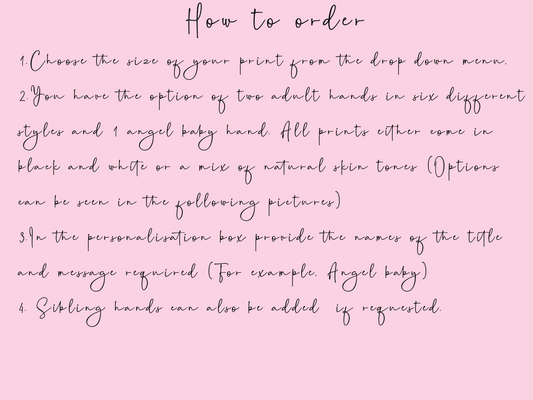 How to order
1.Choose the size of your print from the drop down menu.
2.You have the option of two adult hands in six different
styles and 1 angel baby hand. All prints either come in
black and white or a mix of natural skin tones (Options
can be seen in the following pictures)
3.In the personalisation box provide the names of the title
and message required (For example. Angel baby)
4. Sibling hands can also be added if requested.